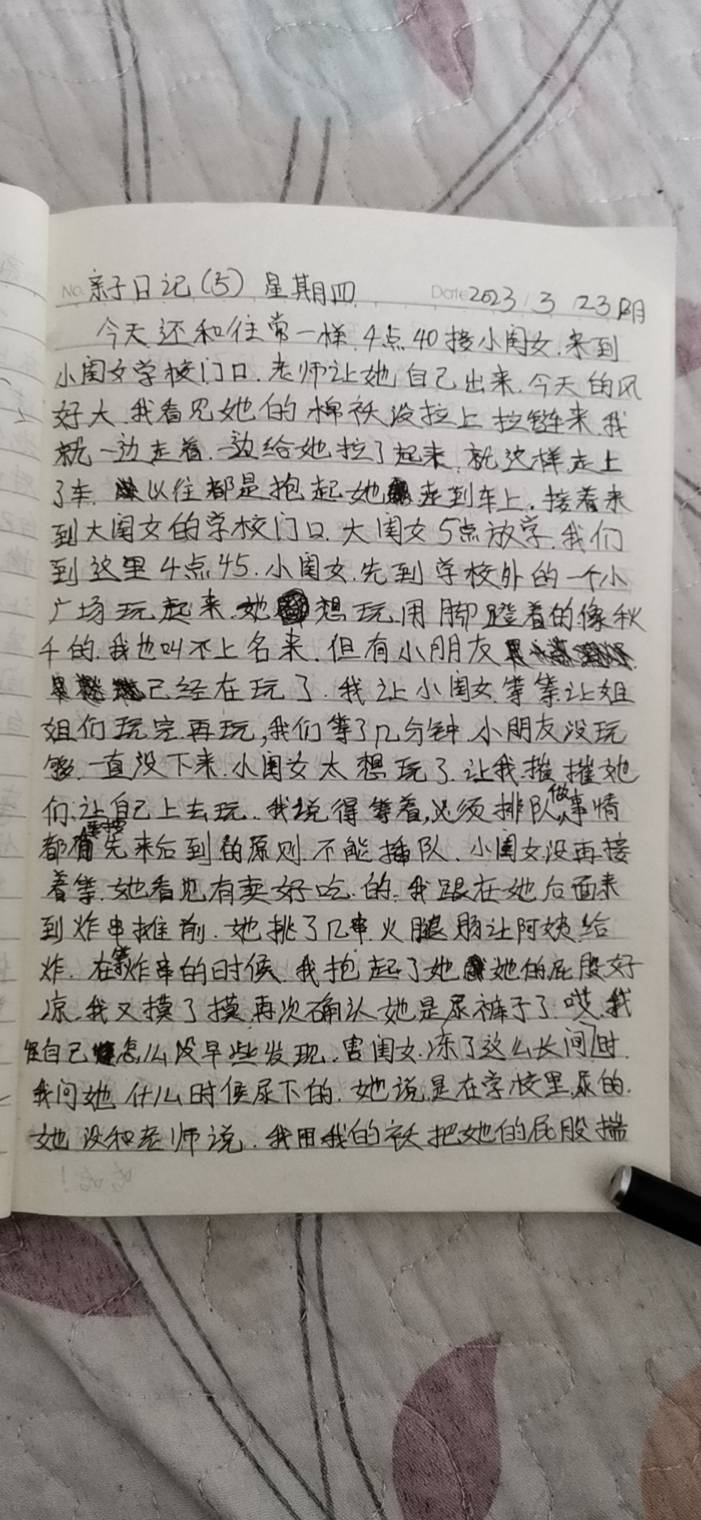 No. 亲子日记(5) 星期四 Date 2023 3 23 阴
今天还和往常一样.4点40接小闺女.来到
小闺女学校门口.老师让她自己出来.今天的风
好大.我看见她的棉袄没拉上拉链来.我
就一边走着.一边给她拉了起来.就这样走上
了车.以往都是抱起她走到车上.接着来
到大闺女的学校门口.大闺女5点放学.我们
到这里4点45.小闺女先到学校外的一个小
广场玩起来.她想玩用脚蹬着的像秋
千的.我也叫不上名来.但有小朋友
已经在玩了.我让小闺女等等让姐
姐们玩完再玩,我们等了几分钟.小朋友没玩
够.一直没下来.小闺女太想玩了.让我摧摧她
们.让自己上去玩.我说得等着,必须排队,做事情
都有先来后到的原则.不能插队.小闺女没再接
着等.她看见有卖好吃的.我跟在她后面来
到炸串摊前.她挑了几串火腿肠让阿姨给
炸.在等炸串的时候.我抱起了她她的屁股好
凉.我又摸了摸再次确认她是尿裤子了.哎.我
自己怎么没早些发现.害闺女冻了这么长时间.
我问她什么时候尿下的.她说是在学校里尿的.
她没和老师说.我用我的袄把她的屁股揣